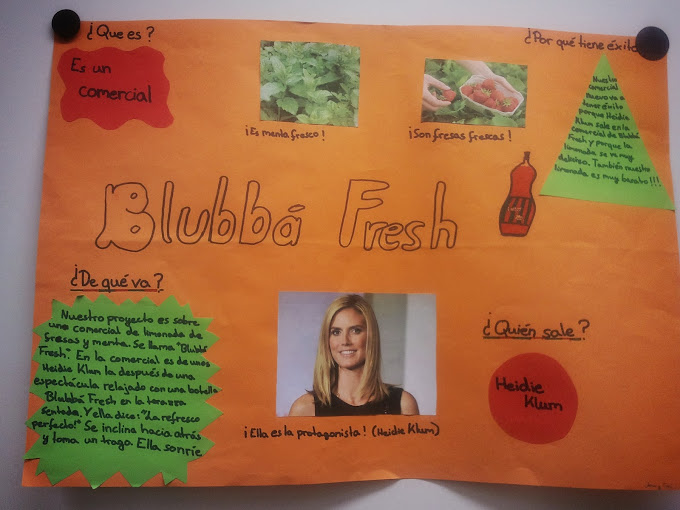 ¿Que es?
Es un
comercial
¡Es menta fresco!
¡Son fresas frescas!
¿Por qué tiene éxito?
Nuestro
comercial
nuevo va a
tener éxito
porque Heidie
Klum sale en la
comercial de Blubbá
Fresh y porque la
limonada se va muy
deliziosa. También nuestro
limonada es muy barato!!!
Blubbá Fresh
¿De qué va?
Nuestro proyecto es sobre
una comercial de limonada de
fresas y menta. Se llama "Blubbá
Fresh". En la comercial es de unos
Heidie Klum la después de una
espectáculo relajado con una botella
Blubbá Fresh en la terazza
sentada. Y ella dice: "¡La refresco
perfecto!" Se inclina hacia atrás
y toma un trago. Ella sonríe
¡Ella es la protagonista! (Heidie Klum)
¿Quién sale?
Heidie
Klum